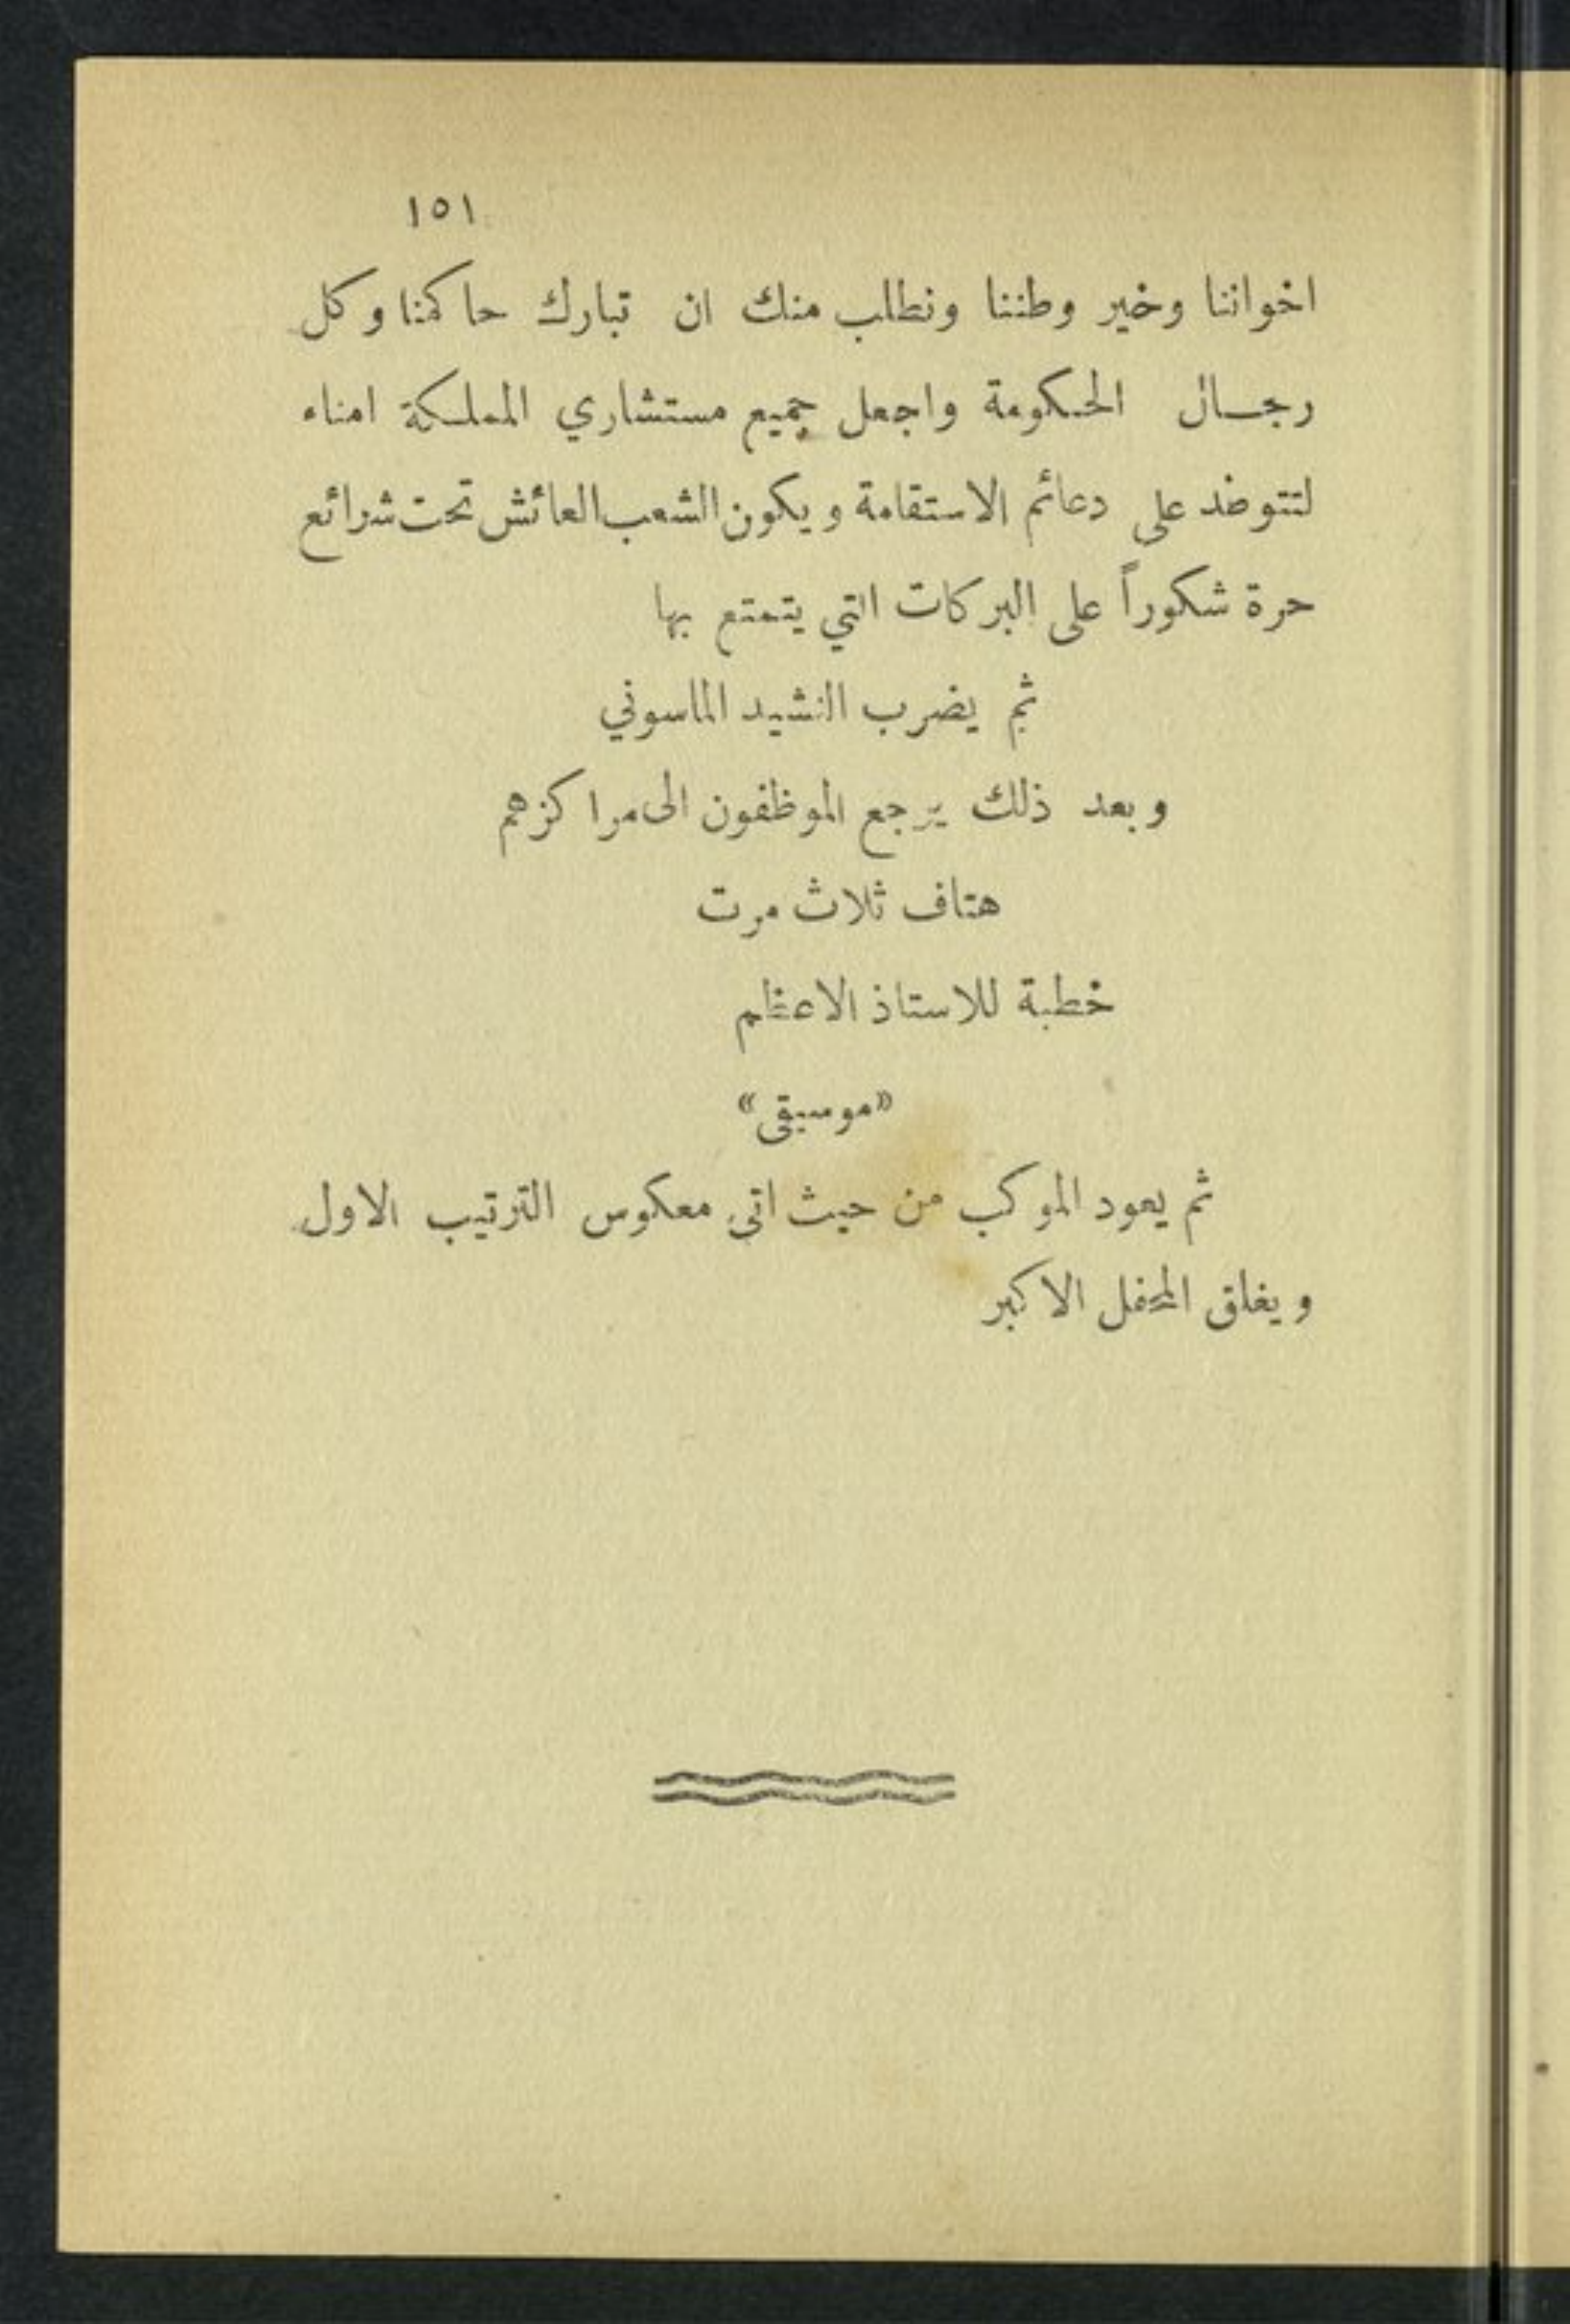 ١٥١
اخواننا وخير وطننا ونطلب منك ان تبارك حاكمنا وكل
رجال الحكومة واجعل جميع مستشاري المملكة امناء
لتتوطد على دعائم الاستقامة ويكون الشعب العائش تحت شرائع
حرة شكوراً على البركات التي يتمتع بها
ثم يضرب النشيد الماسوني
وبعد ذلك يرجع الموظفون الى مراكزهم
هتاف ثلاث مرت
خطبة للاستاذ الاعظم
«موسيقى»
ثم يعود الموكب من حيث اتى معكوس الترتيب الاول
ويغلق المحفل الاكبر